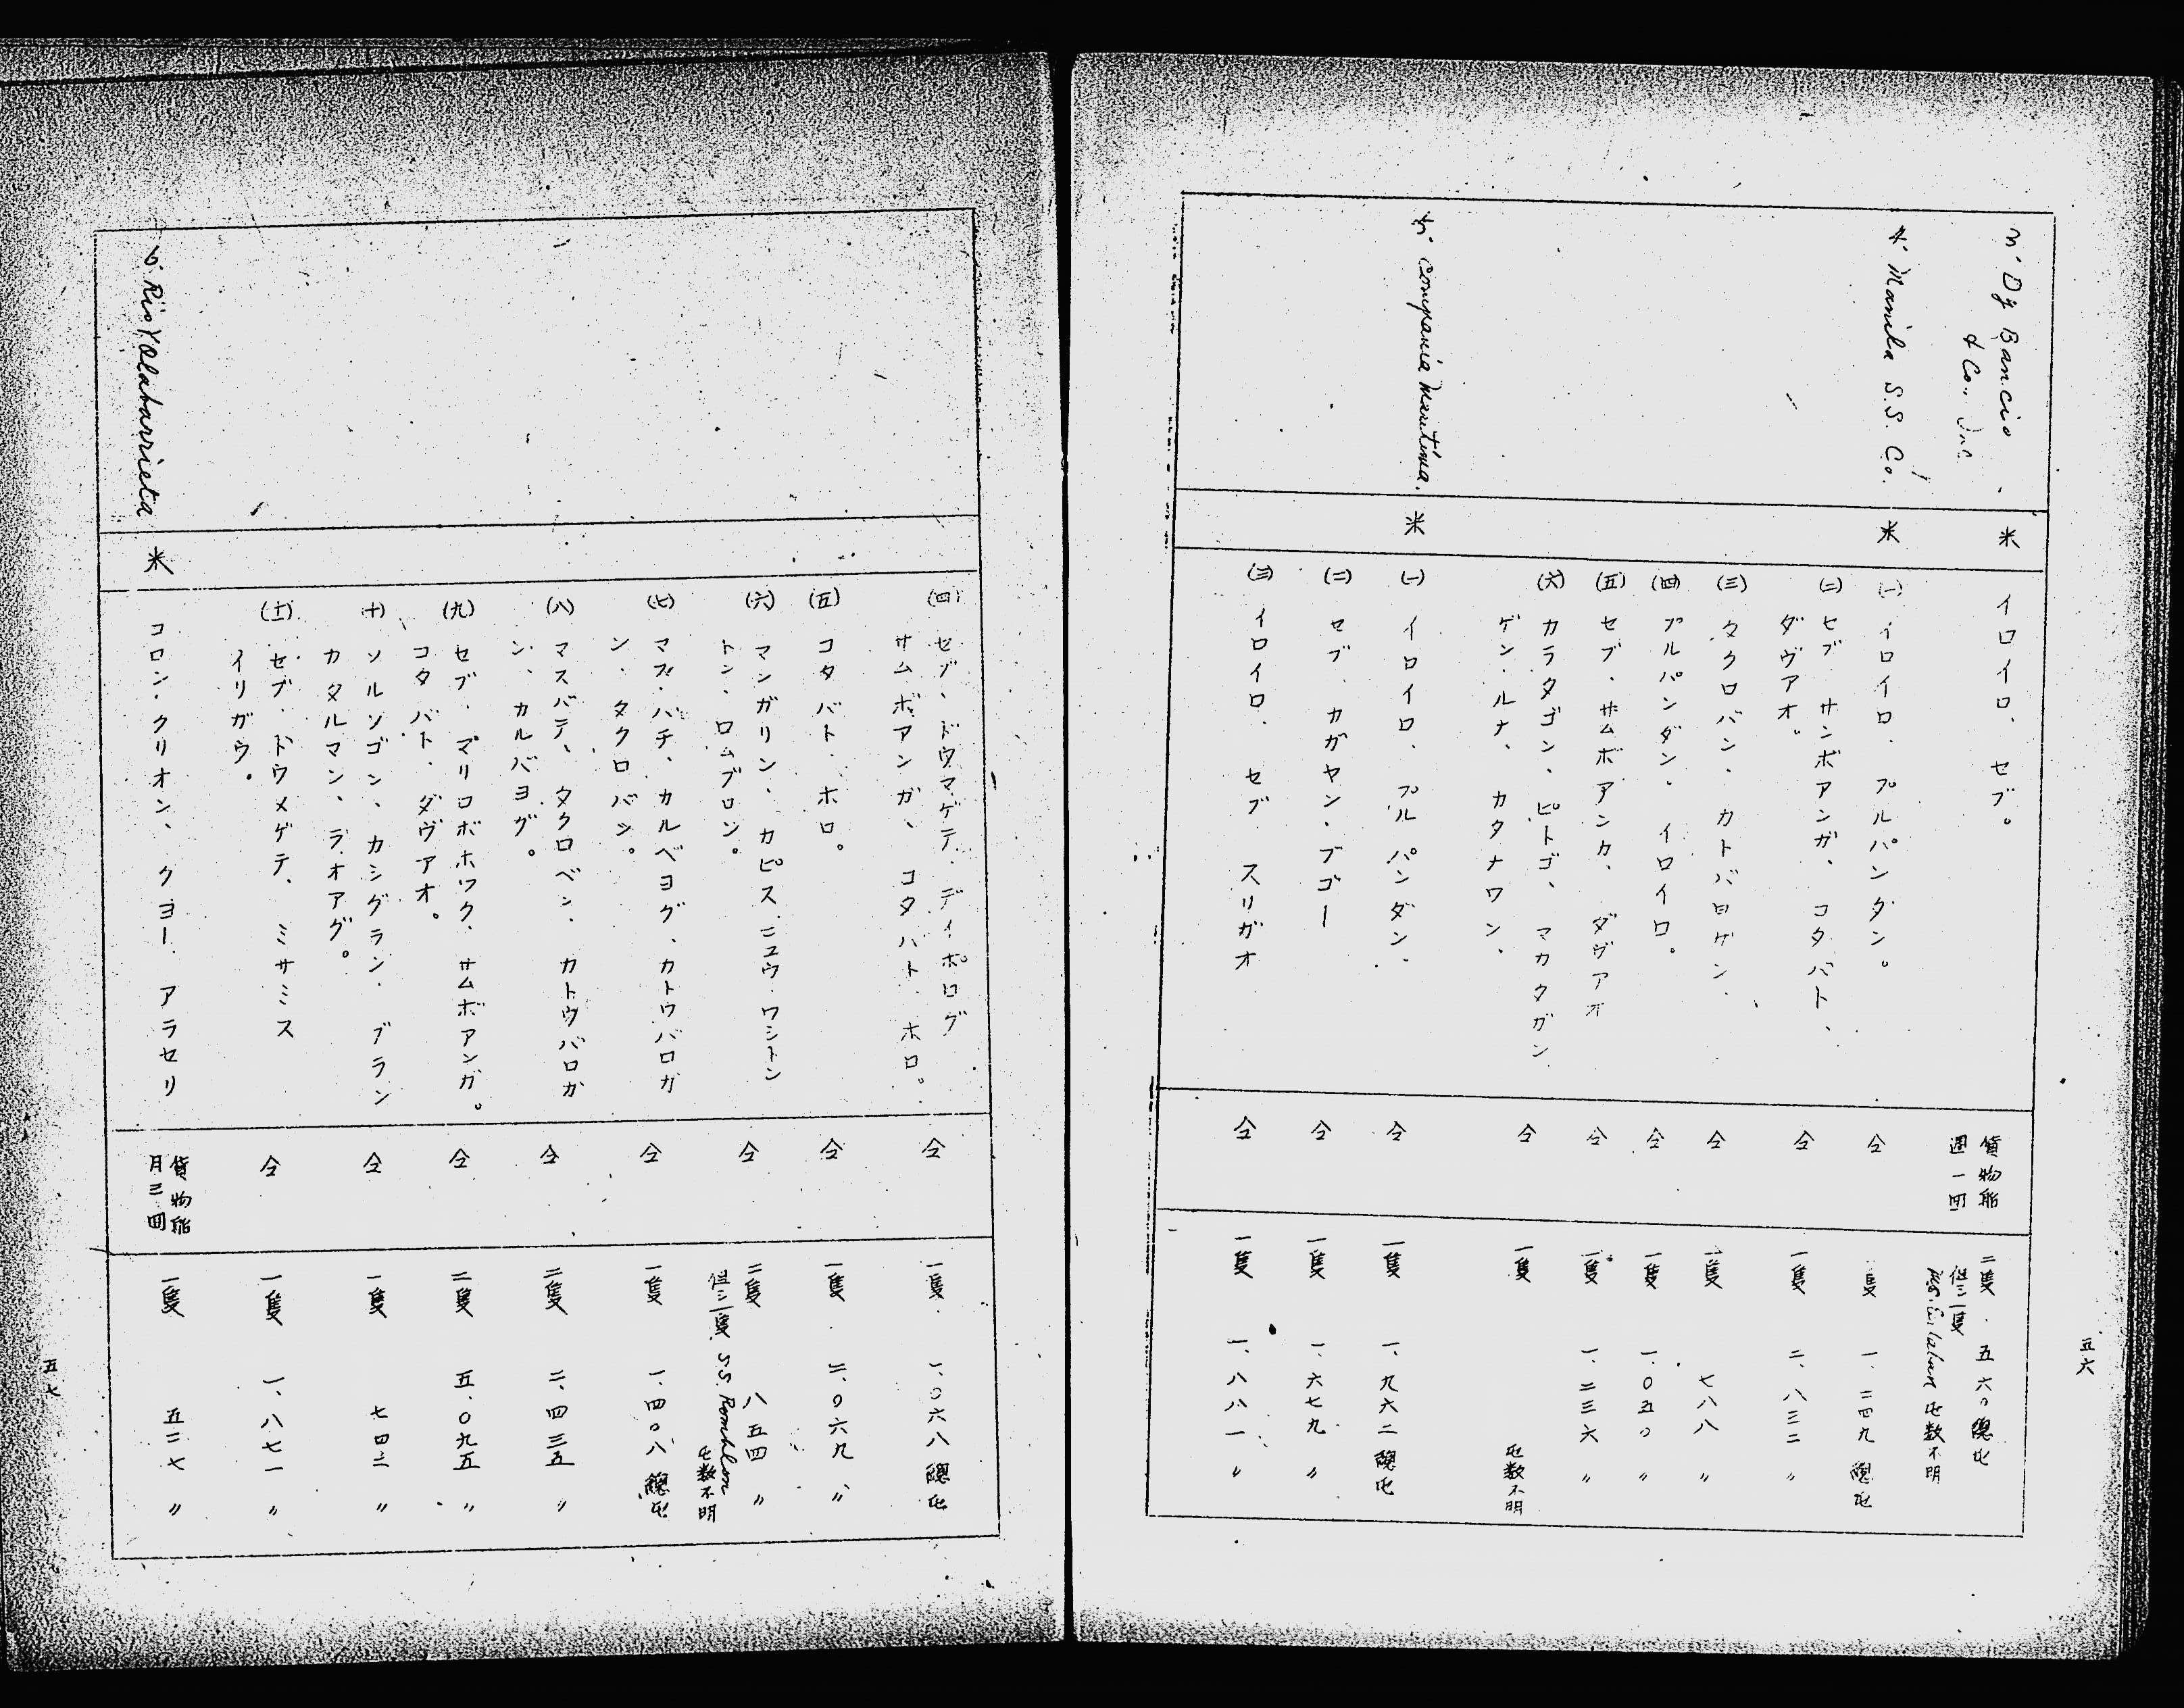 五六
Dy Bancio
& Co., Inc.
米
イロイロ、セブ。
貨物船
週一回
二隻 五六〇總屯
但シ一隻
屯数不明
Manila S.S. Co.
米
(一) イロイロ、プルパンダン。
仝
一隻 一、二四九總屯
(二) セブ サンボアンガ、コタバト、
ダヴアオ。
仝
一隻 二、八三二 〃
(三) タクロバン、カトバロガン、
仝
一隻 七八八 〃
(四) プルパンダン、イロイロ。
仝
一隻 一、〇五〇 〃
(五) セブ、サムボアンカ、ダヴアオ
仝
一隻 一、二三六 〃
(六) カラタゴン、ピトゴ、マカタガン
ゲン・ルナ、カタナワン、
仝
一隻 屯数不明
Compania Maritima.
米
(一) イロイロ、プルパンダン、
仝
一隻 一、九六二總屯
(二) セブ、カガヤン、ブゴー
仝
一隻 一、六七九 〃
(三) イロイロ、セブ スリガオ
仝
一隻 一、八八一 〃
(四) セブ、ドウマゲテ、デイポログ
サムボアンガ、コタハト、ホロ。
仝
一隻 一、〇六八總屯
(五) コタバト、ホロ。
仝
一隻 二、〇六九 〃
(六) マンガリン、カピス、ニユウ・ワシトン
トン、ロムブロン。
仝
二隻 八五四 〃
但シ一隻 S.S. Romblon 屯数不明
(七) マブ・バチ、カルベヨグ、カトウバロガ
ン、タクロバン。
仝
一隻 一、四〇八總屯
(八) マスバテ、タクロベン、カトウバロガ
ン、カルバヨグ。
仝
二隻 二、四三五 〃
(九) セブ、マリロボホワク、サムボアンガ。
コタバト、ダヴアオ。
仝
二隻 五、〇九五 〃
(十) ソルソゴン、カシグラン、ブラン
カタルマン、ラオアグ。
仝
一隻 七四三 〃
(十一) セブ、ドウメゲテ、ミサミス
イリガウ。
仝
一隻 一、八七一 〃
Rio Y Olabarrieta
米
コロン・クリオン、クヨー アラセリ
貨物船
月三回
一隻 五二七 〃
五七